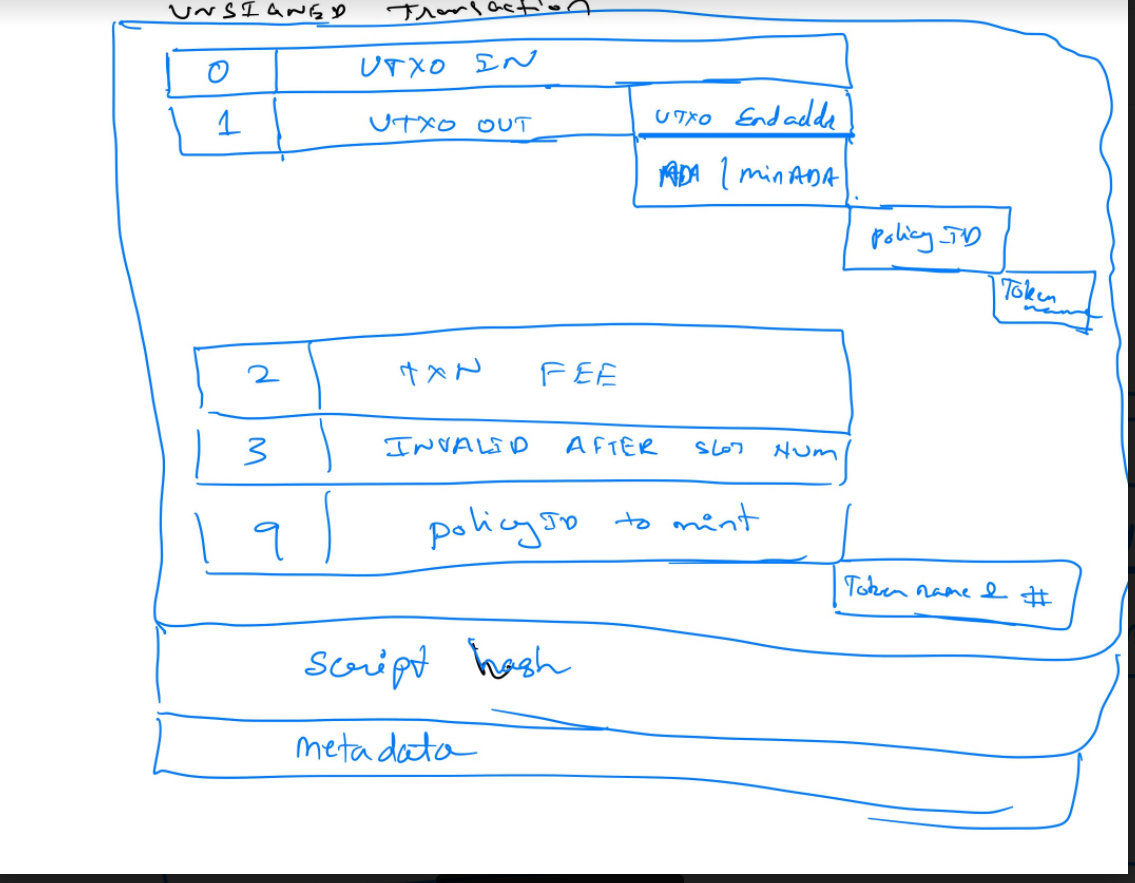 UNSIGNED Transaction
0 UTXO IN
1 UTXO OUT
UTXO End addr
ADA / minADA
policy ID
Token
name
2 TXN FEE
3 INVALID AFTER SLOT NUM
9 policy ID to mint
Token name & #
script hash
metadata